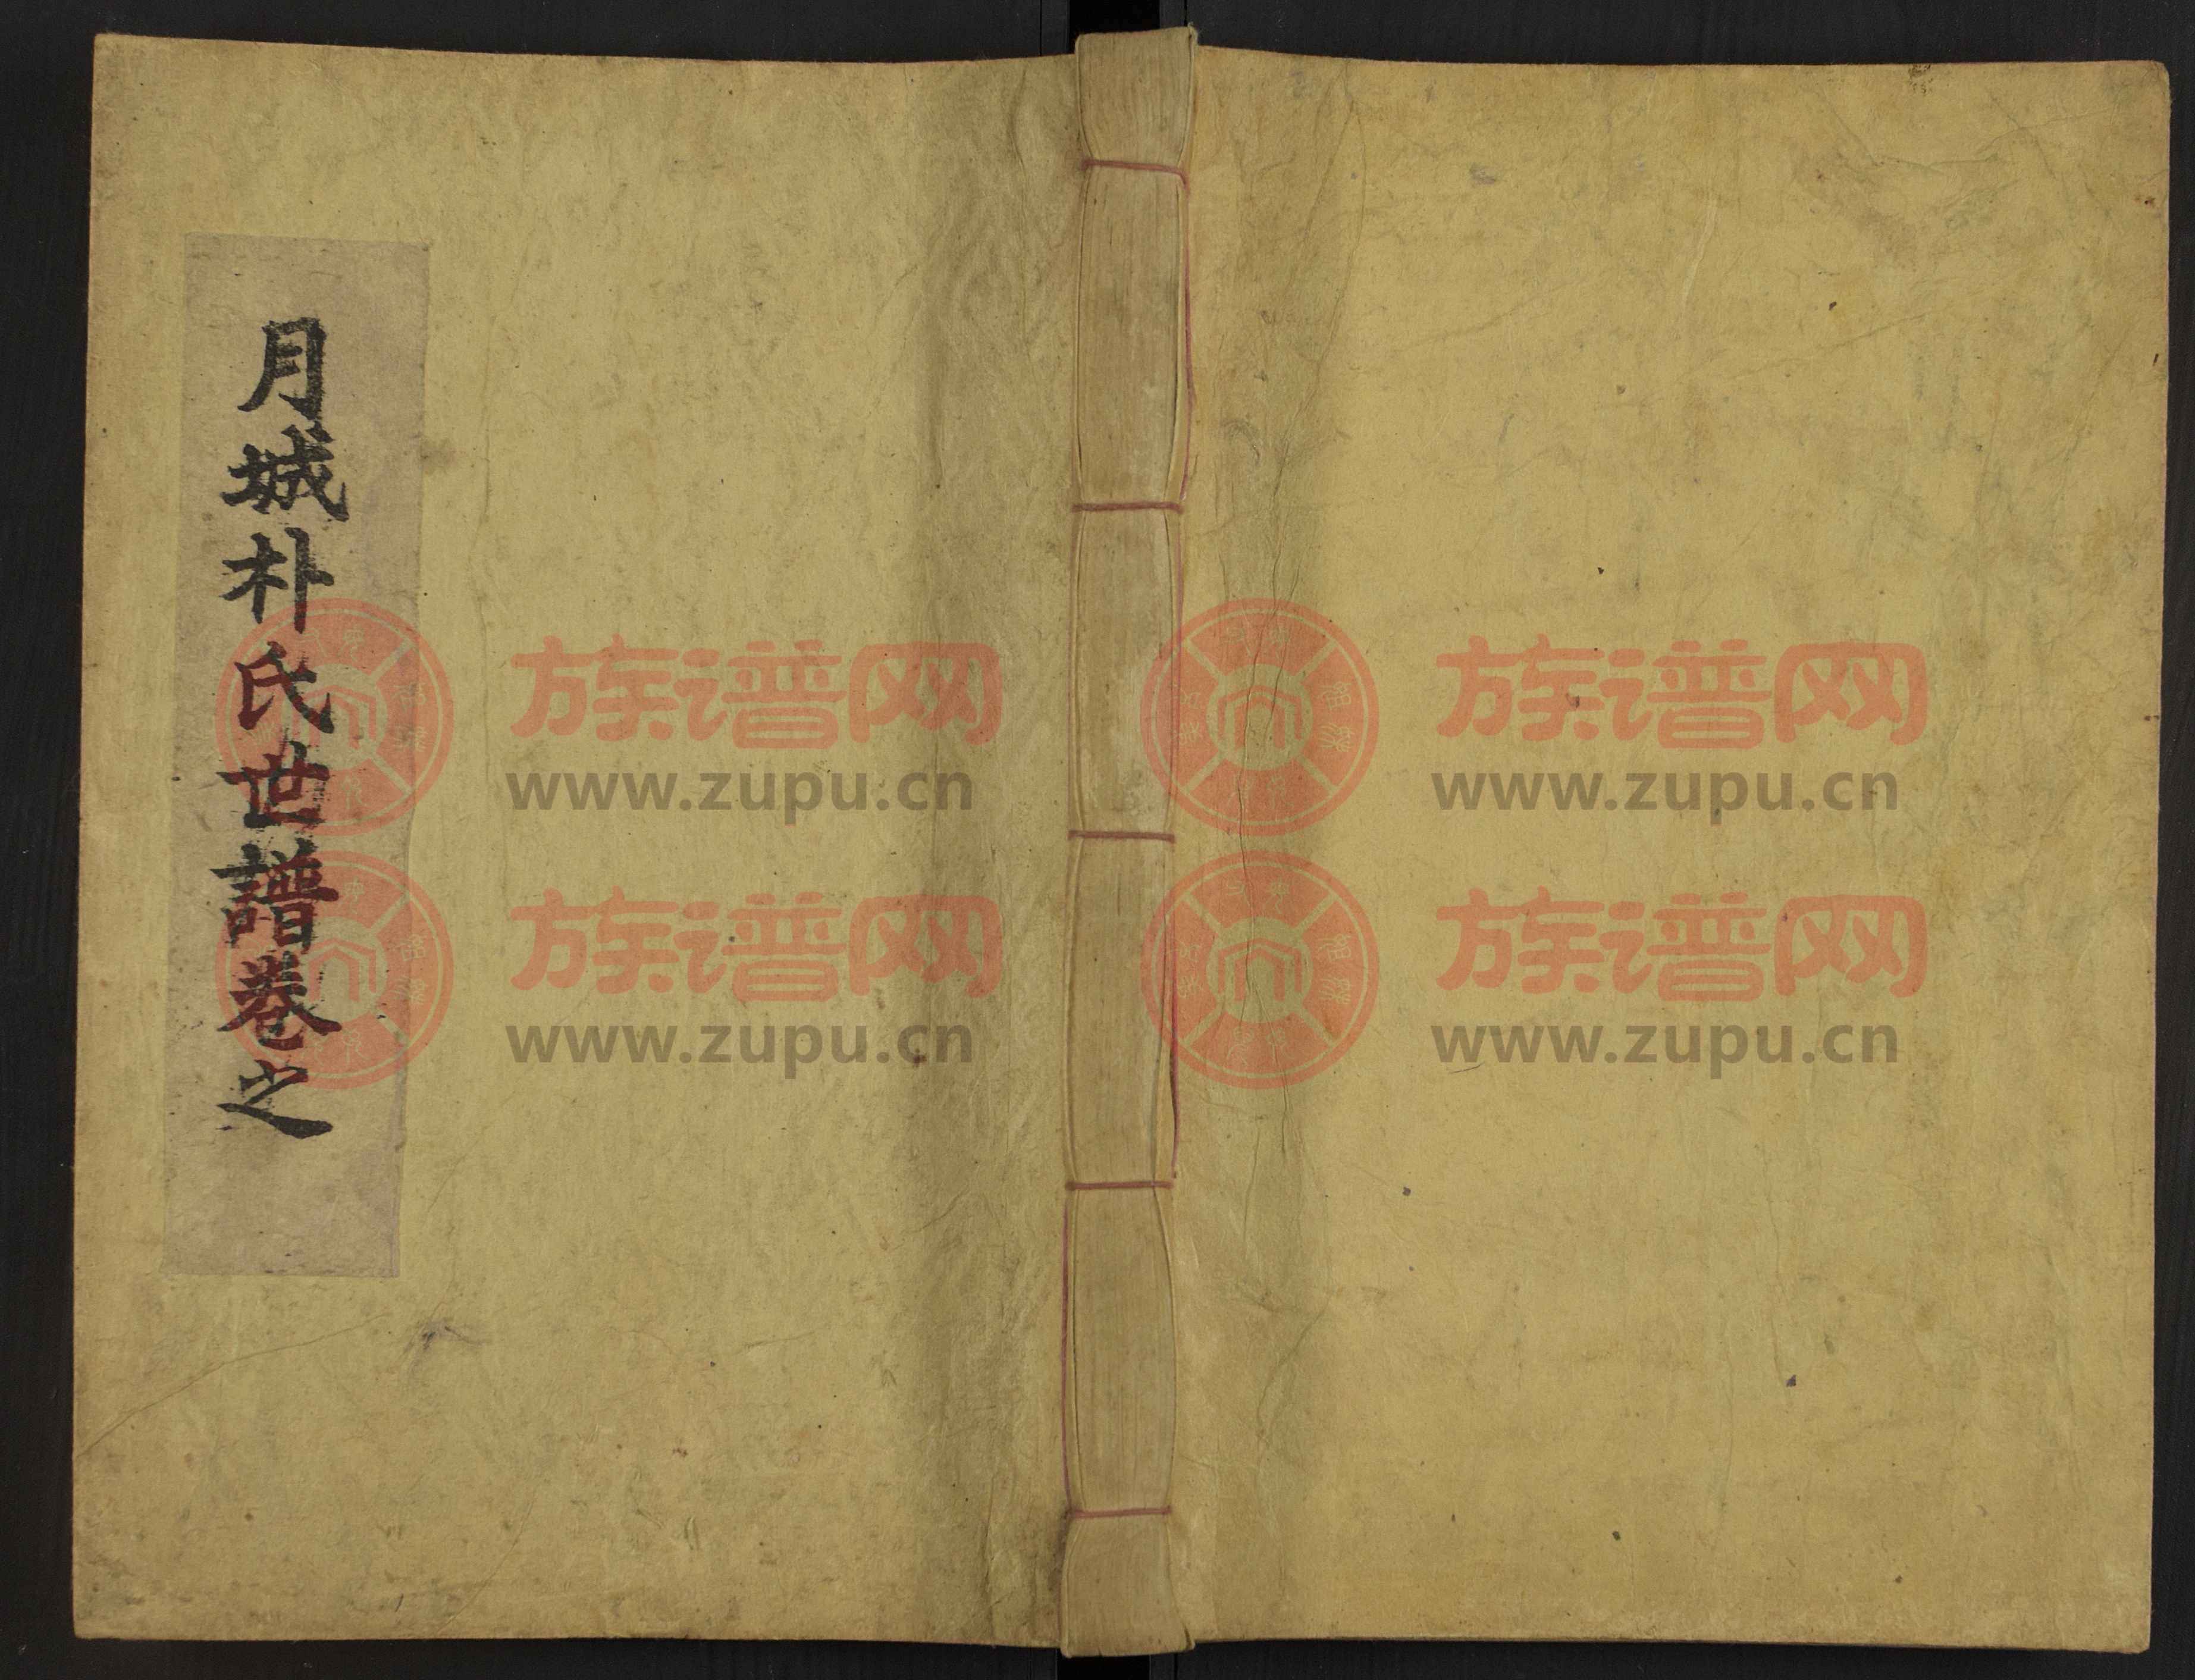 月城朴氏世譜卷之
族谱网
www.zupu.cn
族谱网
www.zupu.cn
族谱网
www.zupu.cn
族谱网
www.zupu.cn